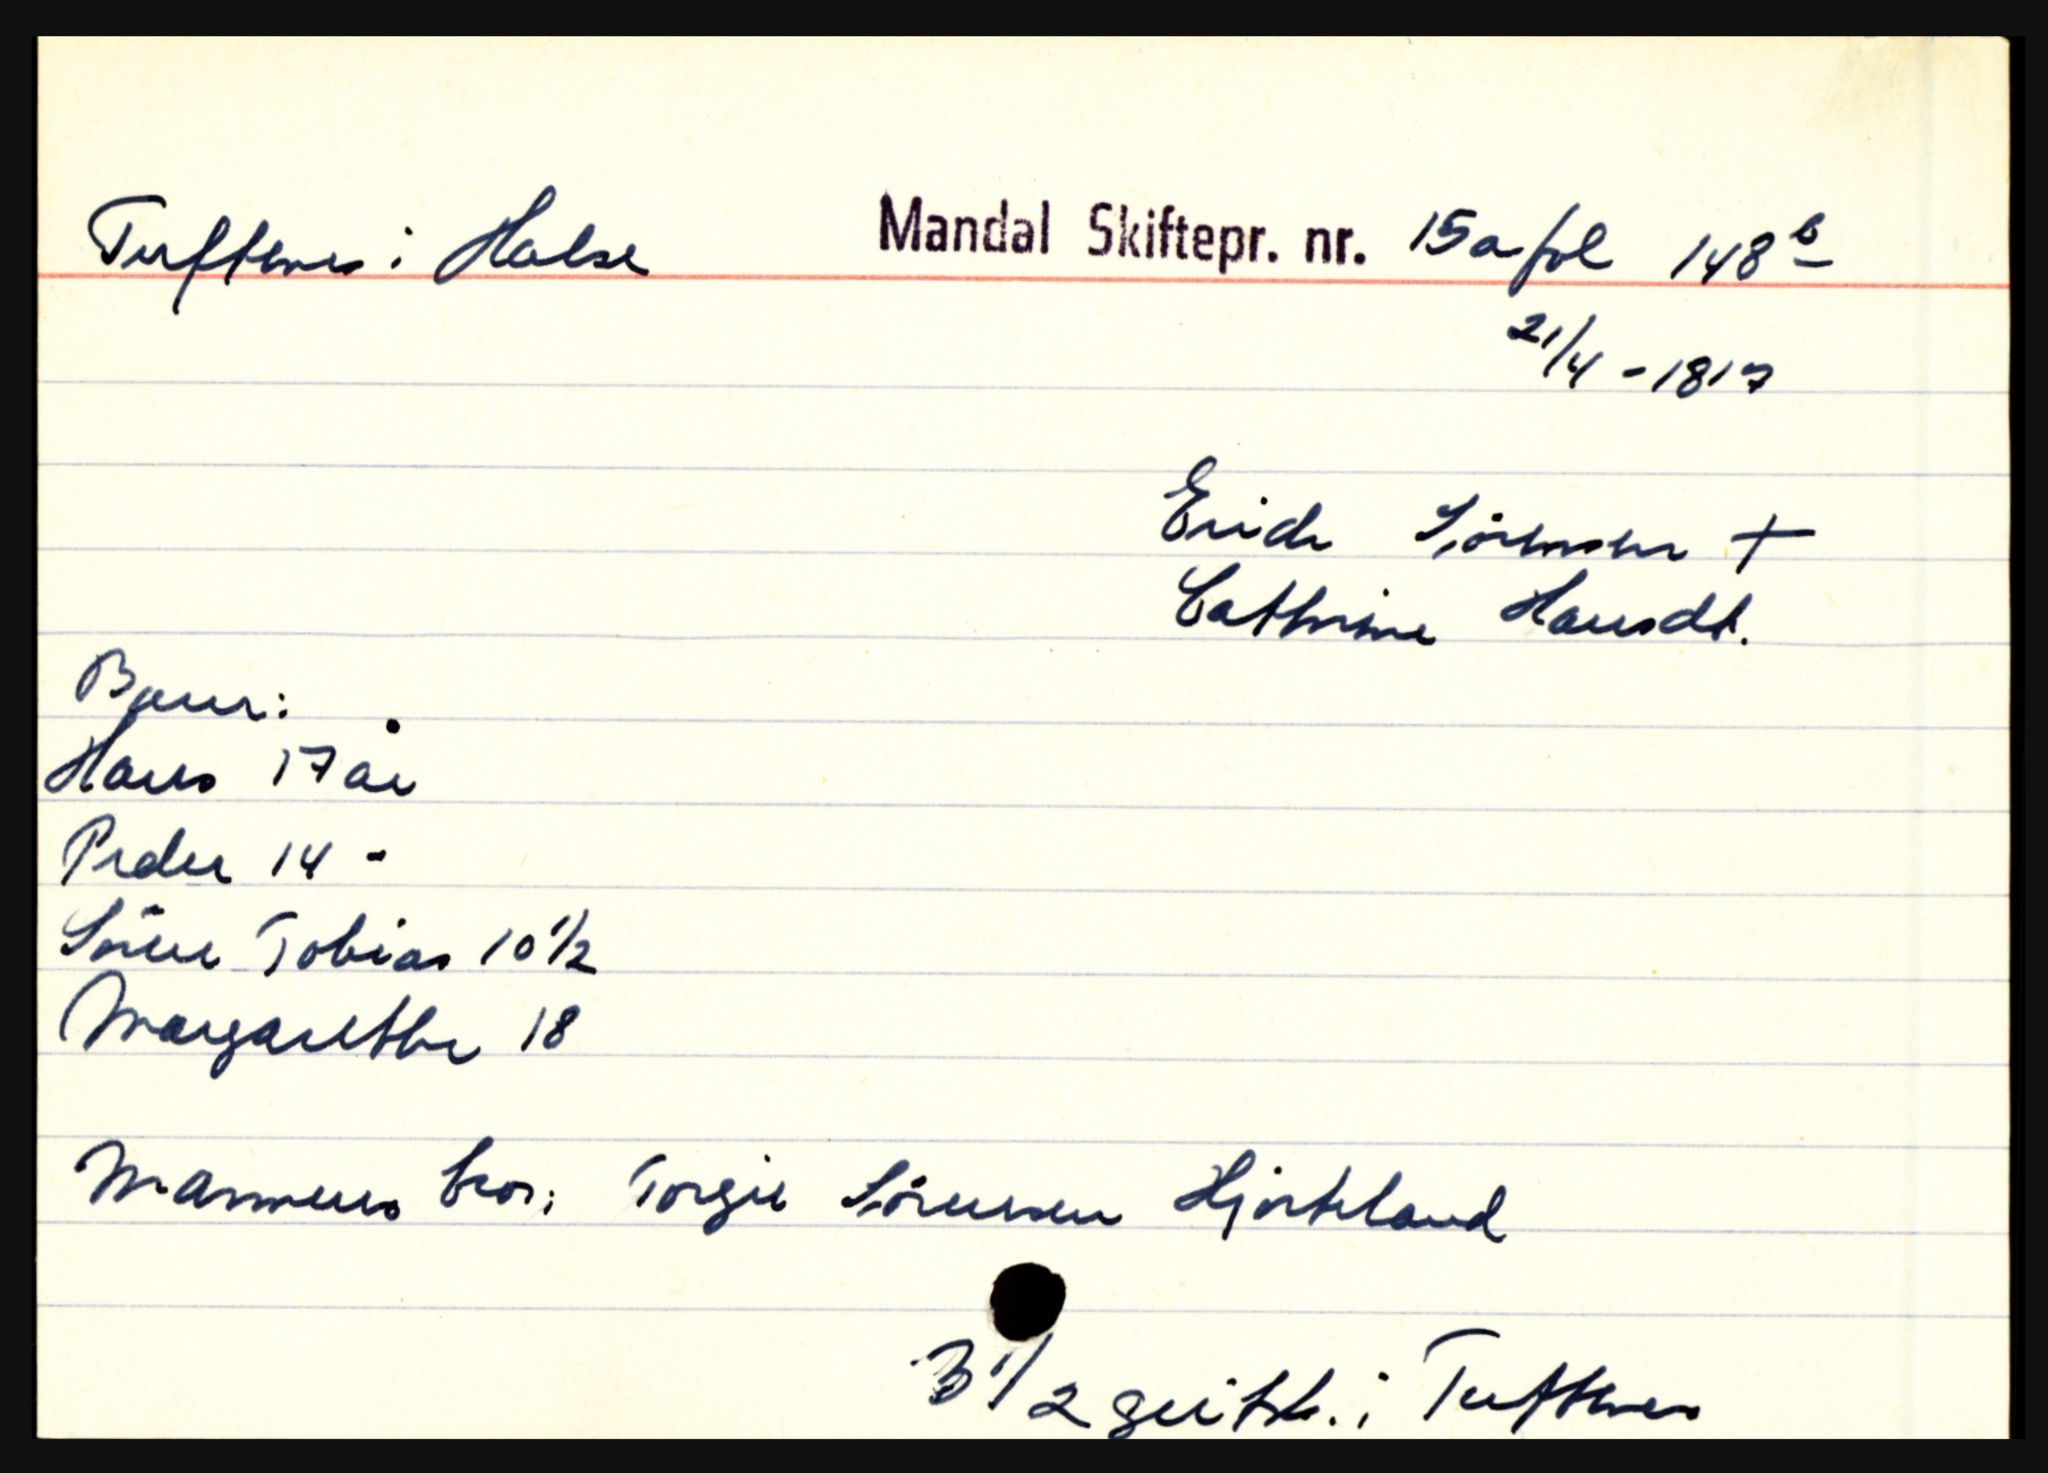 Tuftenes i Halse Mandal Skiftepr. nr. 15a fol 148b
21/4 - 1817
Erich Sörensen +
Cathrine Hansdt.
Barn:
Hans 17 år
Peder 14 -
Sören Tobias 10 1/2
Margarethe 18
Mannens bror: Torgir Sörensen Hjorteland
3 1/2 geitsk. i Tuftenes